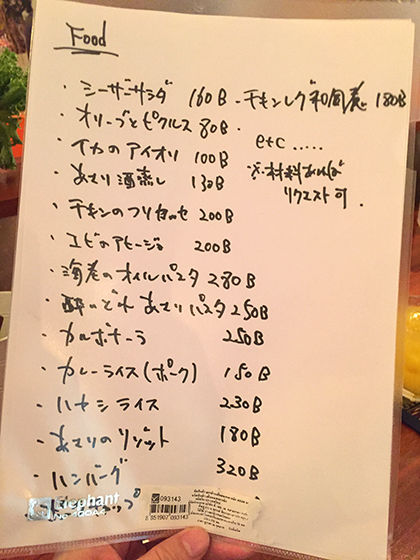 Food
・シーザーサラダ 160B
・オリーブとピクルス 80B
・イカのアイオリ 100B
・あさり酒蒸し 130B
・チキンのフリカッセ 200B
・エビのアヒージョ 200B
・海老のオイルパスタ 280B
・酔いどれあさりパスタ 250B
・カルボナーラ 250B
・カレーライス(ポーク) 150B
・ハヤシライス 230B
・あさりのリゾット 180B
・ハンバーグ 320B
・チキンレッグ和風煮 180B
etc.....
※材料あれば
リクエスト可
Elephant
093143
8 851907 093143